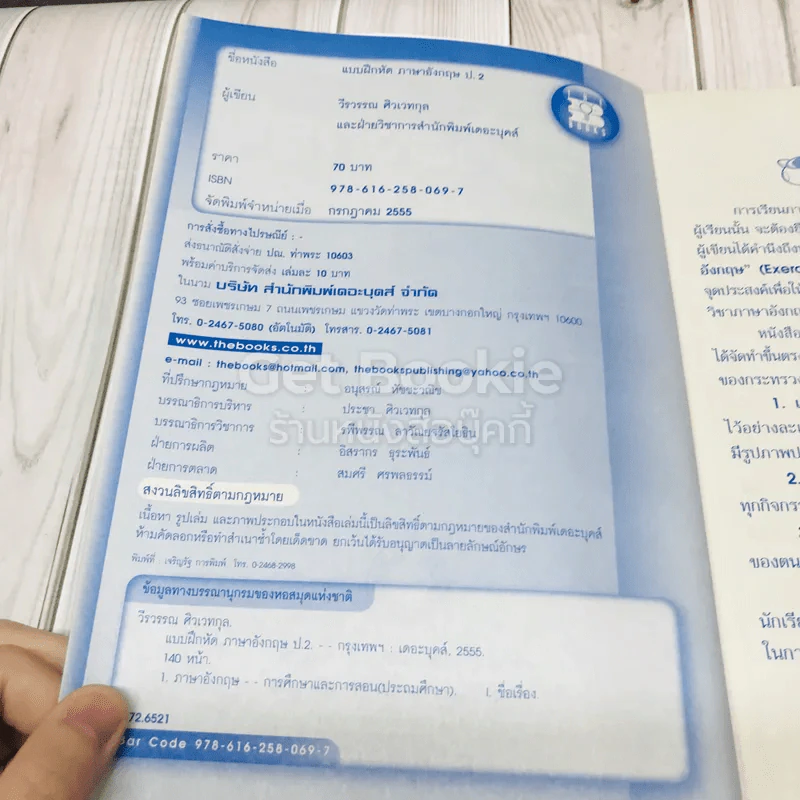 ชื่อหนังสือ แบบฝึกหัด ภาษาอังกฤษ ป.2
ผู้เขียน วีรวรรณ ศิวเวทกุล
และฝ่ายวิชาการสำนักพิมพ์เดอะบุคส์
ราคา 70 บาท
ISBN 978-616-258-069-7
จัดพิมพ์จำหน่ายเมื่อ กรกฎาคม 2555
การสั่งซื้อทางไปรษณีย์ : -
ส่งธนาณัติสั่งจ่าย ปณ. ท่าพระ 10603
พร้อมค่าบริการจัดส่ง เล่มละ 10 บาท
ในนาม บริษัท สำนักพิมพ์เดอะบุคส์ จำกัด
93 ซอยเพชรเกษม 7 ถนนเพชรเกษม แขวงวัดท่าพระ เขตบางกอกใหญ่ กรุงเทพฯ 10600
โทร. 0-2467-5080 (อัตโนมัติ) โทรสาร. 0-2467-5081
www.thebooks.co.th
e-mail : thebooks@hotmail.com, thebookspublishing@yahoo.co.th
Get Bookie
ร้านหนังสือบุ๊คกี้
ที่ปรึกษากฎหมาย : อนุสรณ์ หัชชะวณิช
บรรณาธิการบริหาร : ประชา ศิวเวทกุล
บรรณาธิการวิชาการ : รพีพรรณ
ฝ่ายการผลิต : อิสรากร ธุระพันธ์
ฝ่ายการตลาด : สมศรี ศรพลธรรม์
สงวนลิขสิทธิ์ตามกฎหมาย
เนื้อหา รูปเล่ม และภาพประกอบในหนังสือเล่มนี้เป็นลิขสิทธิ์ตามกฎหมายของสำนักพิมพ์เดอะบุคส์
ห้ามคัดลอกหรือทำสำเนาซ้ำโดยเด็ดขาด ยกเว้นได้รับอนุญาตเป็นลายลักษณ์อักษร
พิมพ์ที่ เจริญรัฐ การพิมพ์ โทร. 0-2468-2998
ข้อมูลทางบรรณานุกรมของหอสมุดแห่งชาติ
วีรวรรณ ศิวเวทกุล.
แบบฝึกหัด ภาษาอังกฤษ ป.2. - - กรุงเทพฯ : เดอะบุคส์, 2555.
140 หน้า.
1. ภาษาอังกฤษ - - การศึกษาและการสอน(ประถมศึกษา). I. ชื่อเรื่อง.
72.6521
Bar Code 978-616-258-069-7
การเรียนภา
ผู้เรียนนั้น จะต้องยึ
ผู้เขียนได้คำนึงถึง
อังกฤษ" (Exerc
จุดประสงค์เพื่อให้
วิชาภาษาอังก
หนังสือ
ได้จัดทำขึ้นตรง
ของกระทรวง
1.
ไว้อย่างละเ
มีรูปภาพป
2.
ทุกกิจกร
ของตน
นักเรีย
ในกา